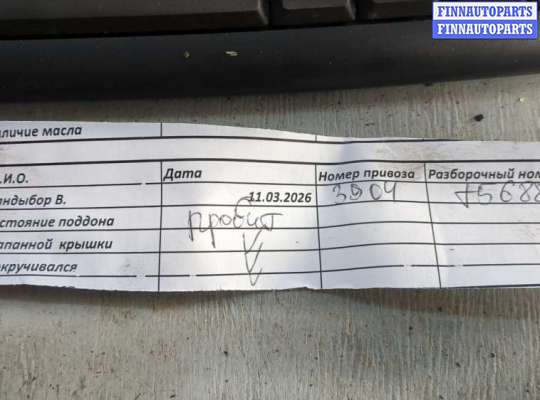 FINNAUTOPARTS
FINNAUTOPARTS
личие масла
.И.О. Дата Номер привоза Разборочный ном
ндыбор В. 11.03.2026 3904 75688
стояние поддона пробит
апанной крышки
окручивался